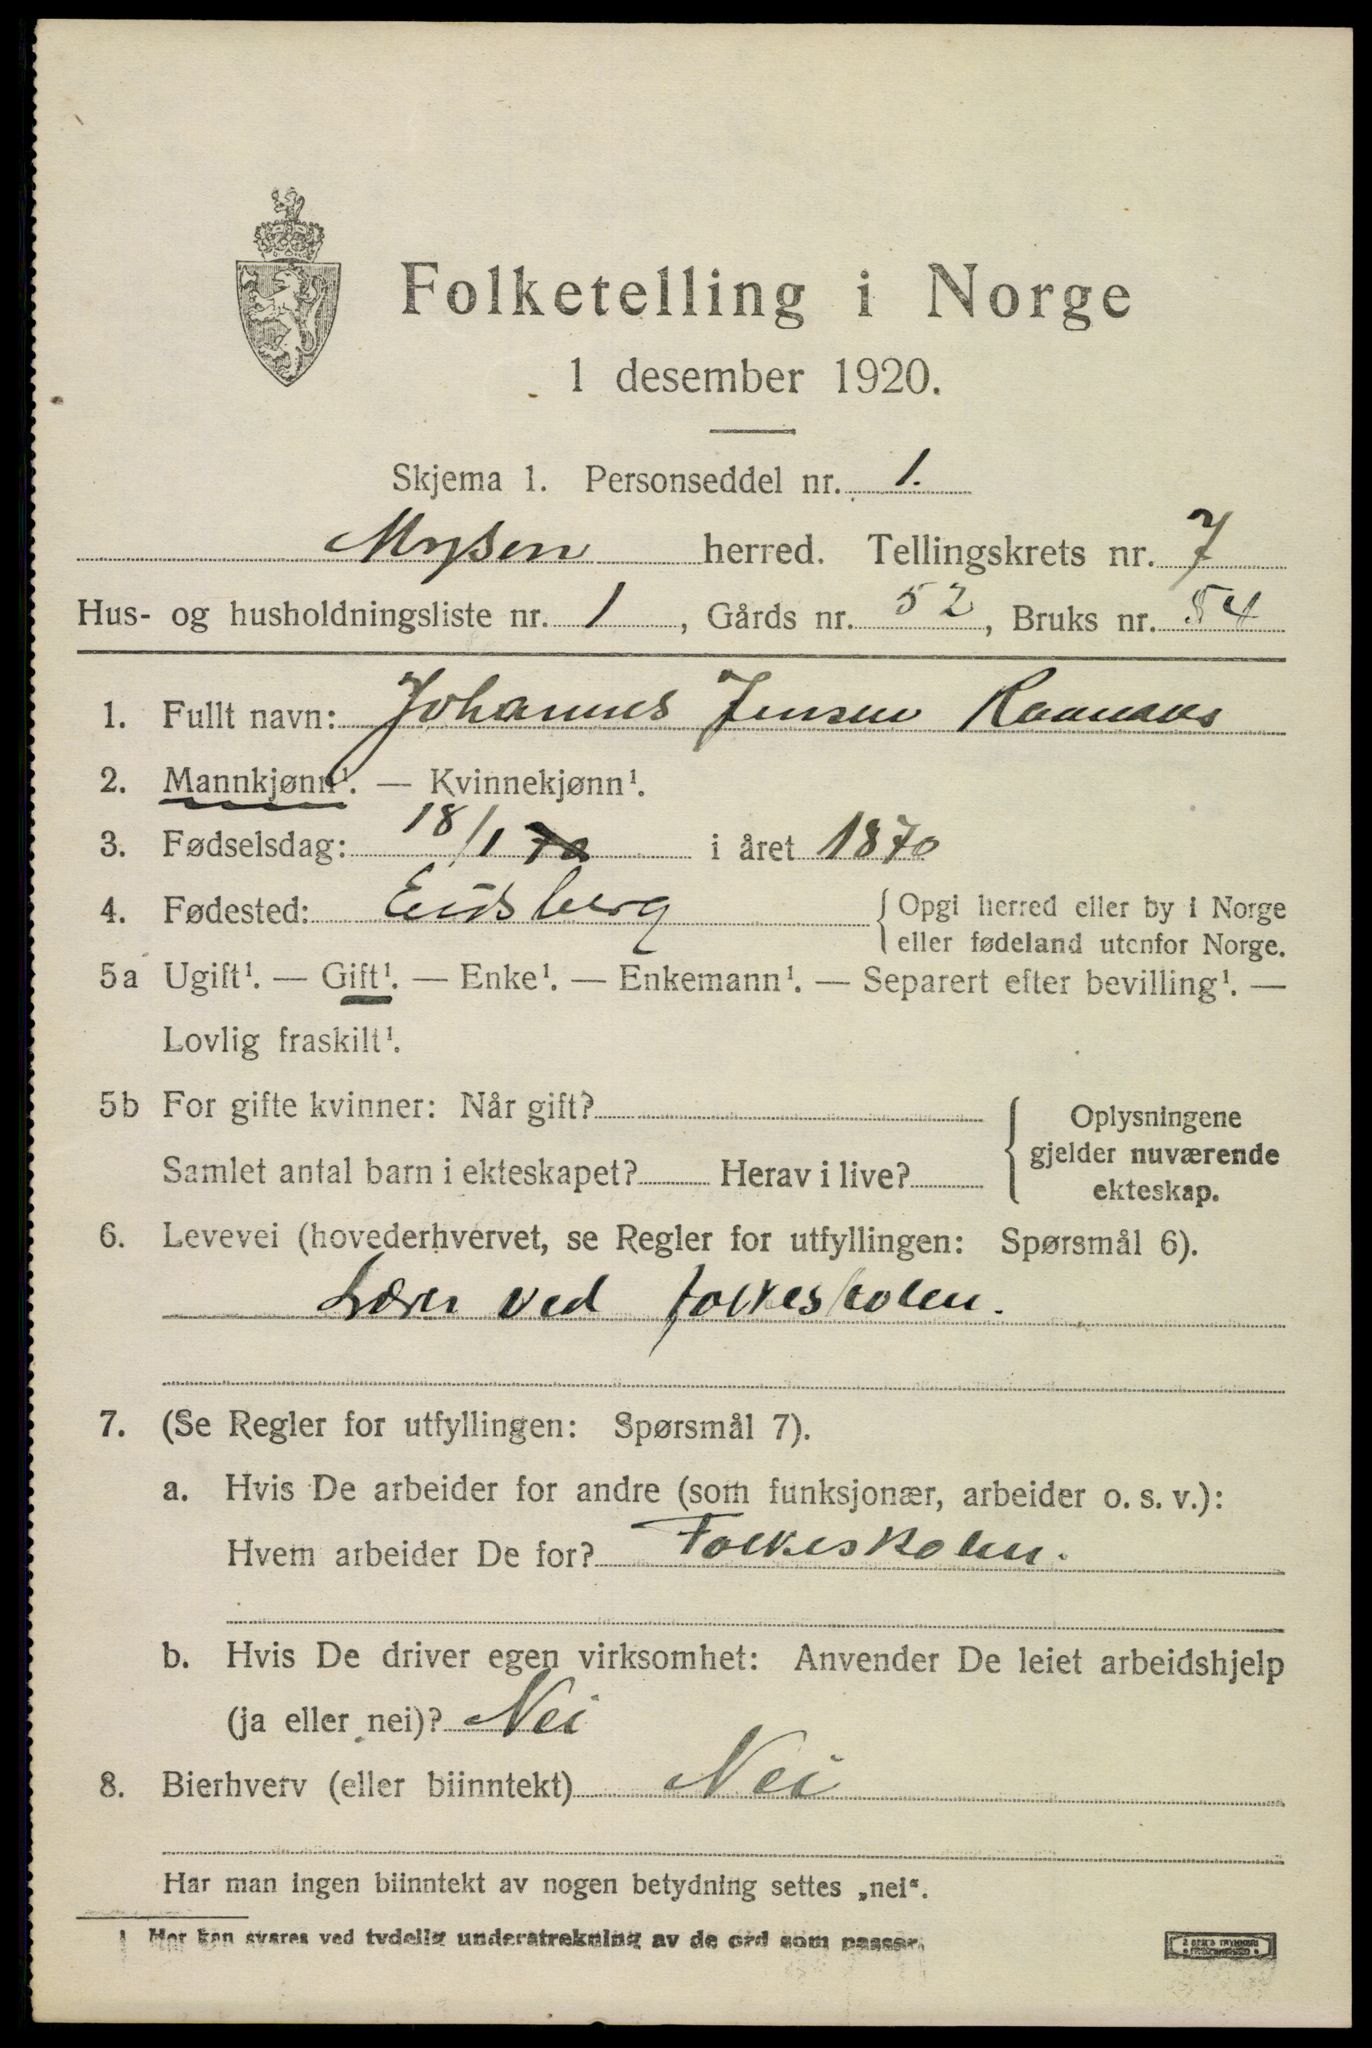 Folketelling i Norge
1 desember 1920.
Skjema 1. Personseddel nr. 1.
Mysen herred. Tellingskrets nr. 7
Hus- og husholdningsliste nr. 1, Gårds nr. 52, Bruks nr. 54
1. Fullt navn: Johannes Jensen
2. Mannkjønn¹. — Kvinnekjønn¹.
3. Fødselsdag: 18/1 70 i året 1870
4. Fødested: Eidsberg { Opgi herred eller by i Norge
eller fødeland utenfor Norge.
5a Ugift¹. — Gift¹. — Enke¹. — Enkemann¹. — Separert efter bevilling¹. —
Lovlig fraskilt¹.
5b For gifte kvinner: Når gift?
Samlet antal barn i ekteskapet? Herav i live?
{ Oplysningene
gjelder nuværende
ekteskap.
6. Levevei (hovederhvervet, se Regler for utfyllingen: Spørsmål 6).
Lærer ved folkeskolen.
7. (Se Regler for utfyllingen: Spørsmål 7).
a. Hvis De arbeider for andre (som funksjonær, arbeider o. s. v.):
Hvem arbeider De for? Folkeskolen.
b. Hvis De driver egen virksomhet: Anvender De leiet arbeidshjelp
(ja eller nei)? Nei
8. Bierhverv (eller biinntekt) Nei
Har man ingen biinntekt av nogen betydning settes „nei“.
¹ Her kan svares ved tydelig understrekning av de ord som passer.